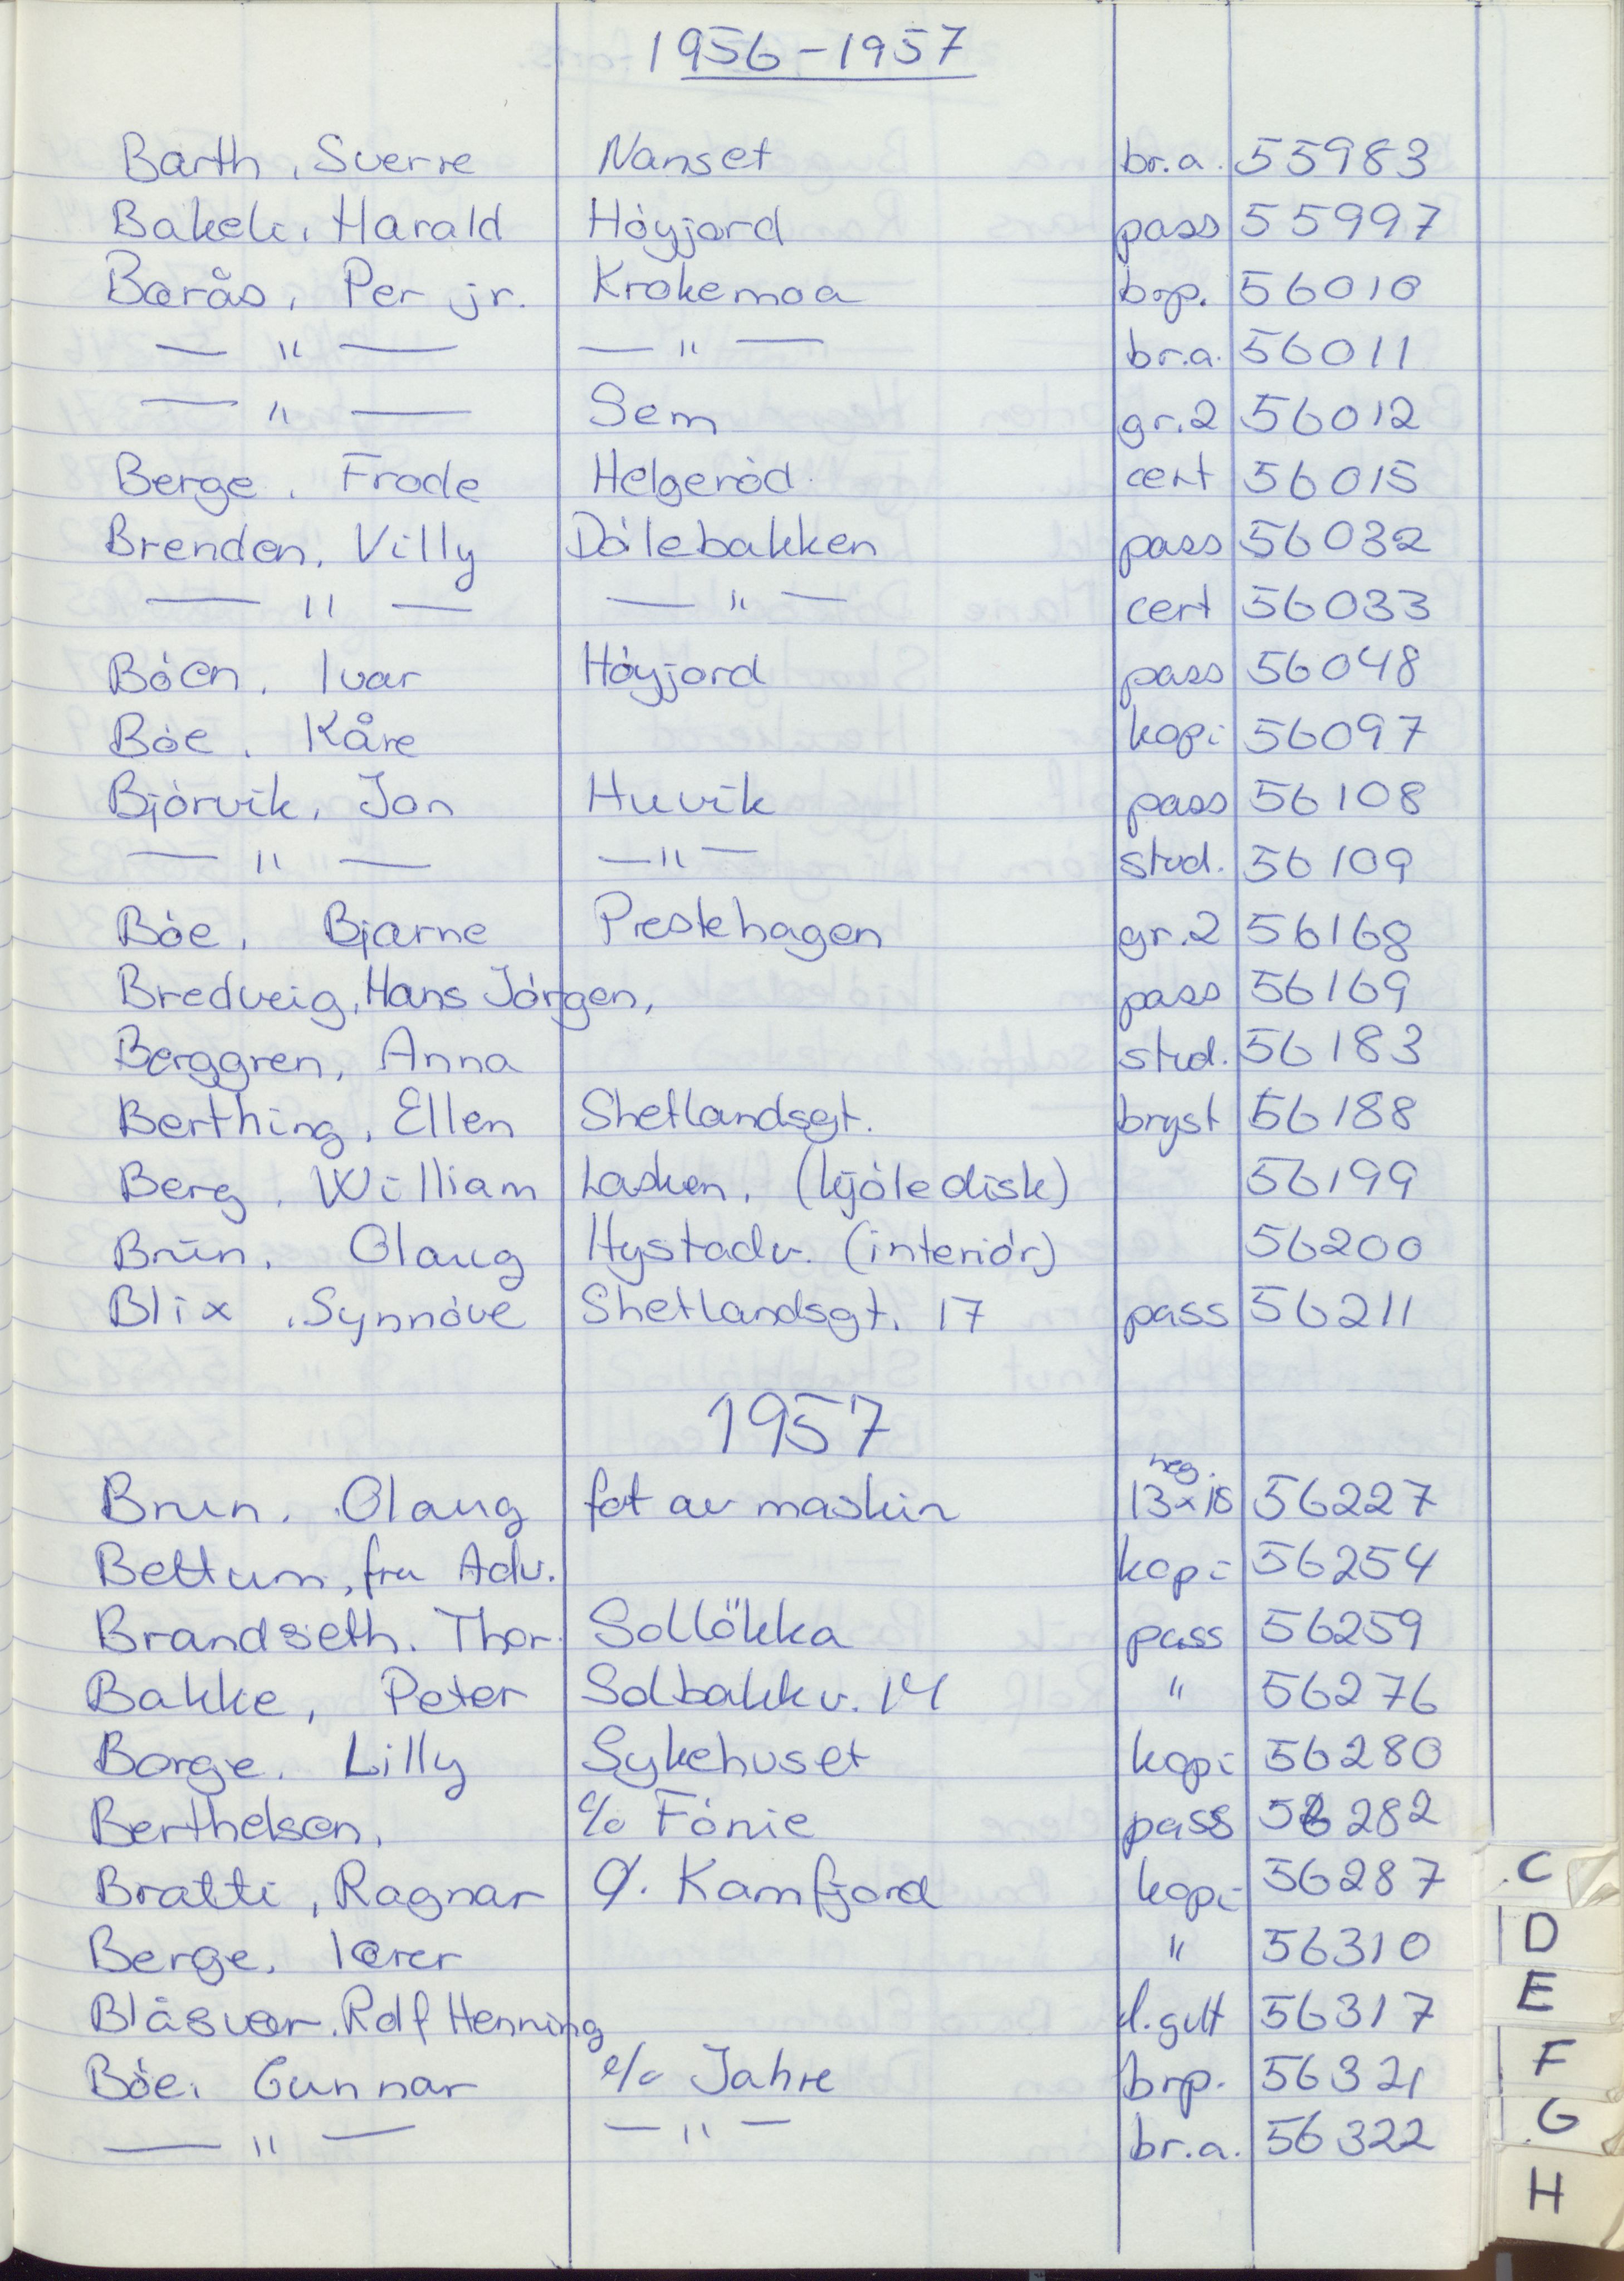 1956-1957
Barth, Sverre Nanset br.a. 55983
Bakeli, Harald Höyjord pass 55997
Barås, Per jr. Krokemoa brp. 56010
— " — — " — br.a. 56011
— " — Sem gr.2 56012
Berge, Frode Helgeröd cert 56015
Brenden, Villy Dölebakken pass 56032
— " — — " — cert 56033
Böen, Ivar Höyjord pass 56048
Böe, Kåre kopi 56097
Bjórvik, Jon Huvik pass 56108
— " — — " — stud. 56109
Bòe, Bjarne Prestehagen gr.2 56168
Bredveig, Hans Jörgen, pass 56169
Berggren, Anna stud. 56183
Berthing, Ellen Shetlandsgt. bryst 56188
Berg, William Lasken, (kjöledisk) 56199
Brun, Olaug Hystadv. (interiör) 56200
Blix, Synnöve Shetlandsgt. 17 pass 56211
1957
Brun, Olaug fot av maskin neg. 13x18 56227
Bettum, fru Adv. kopi 56254
Brandseth, Thor Sollökka pass 56259
Bakke, Peter Solbakkv. 14 " 56276
Borge, Lilly Sykehuset kopi 56280
Berthelsen, c/o Fönie pass 56282
Bratti, Ragnar Ø. Kamfjord kopi 56287
Berge, lærer " 56310
Blåsvær, Rolf Henning d.gutt 56317
Böe, Gunnar c/o Jahre brp. 56321
— " — — " — br.a. 56322
C
D
E
F
G
H